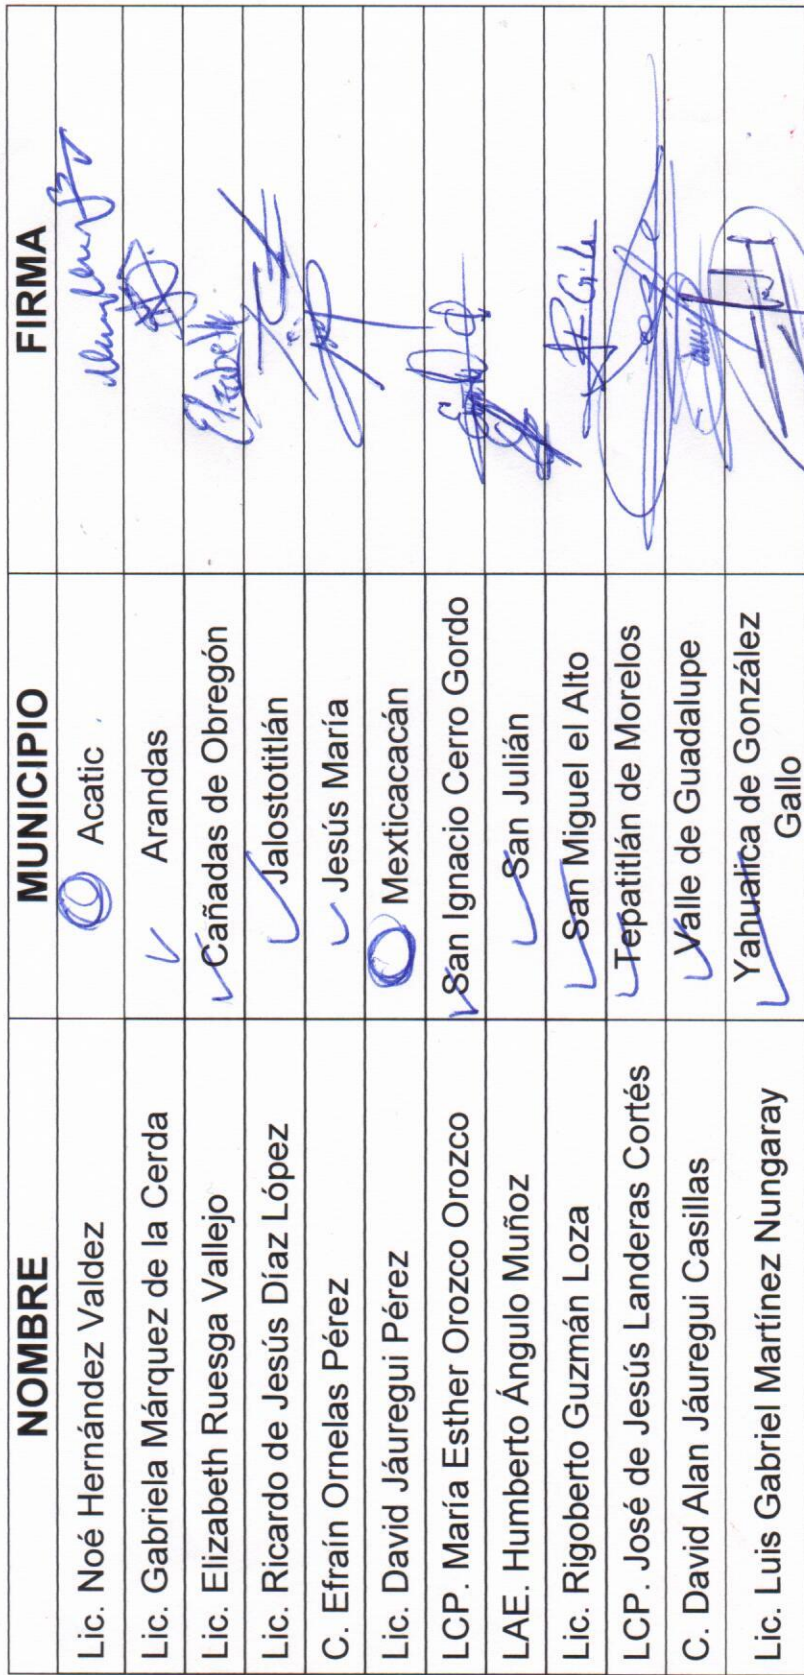 NOMBRE MUNICIPIO FIRMA
Lic. Noé Hernández Valdez Acatic
Lic. Gabriela Márquez de la Cerda Arandas
Lic. Elizabeth Ruesga Vallejo Cañadas de Obregón Elizabeth
Lic. Ricardo de Jesús Díaz López Jalostotitlán
C. Efraín Ornelas Pérez Jesús María
Lic. David Jáuregui Pérez Mexticacacán
LCP. María Esther Orozco Orozco San Ignacio Cerro Gordo
LAE. Humberto Ángulo Muñoz San Julián
Lic. Rigoberto Guzmán Loza San Miguel el Alto
LCP. José de Jesús Landeras Cortés Tepatitlán de Morelos
C. David Alan Jáuregui Casillas Valle de Guadalupe
Lic. Luis Gabriel Martínez Nungaray Yahualica de González
Gallo